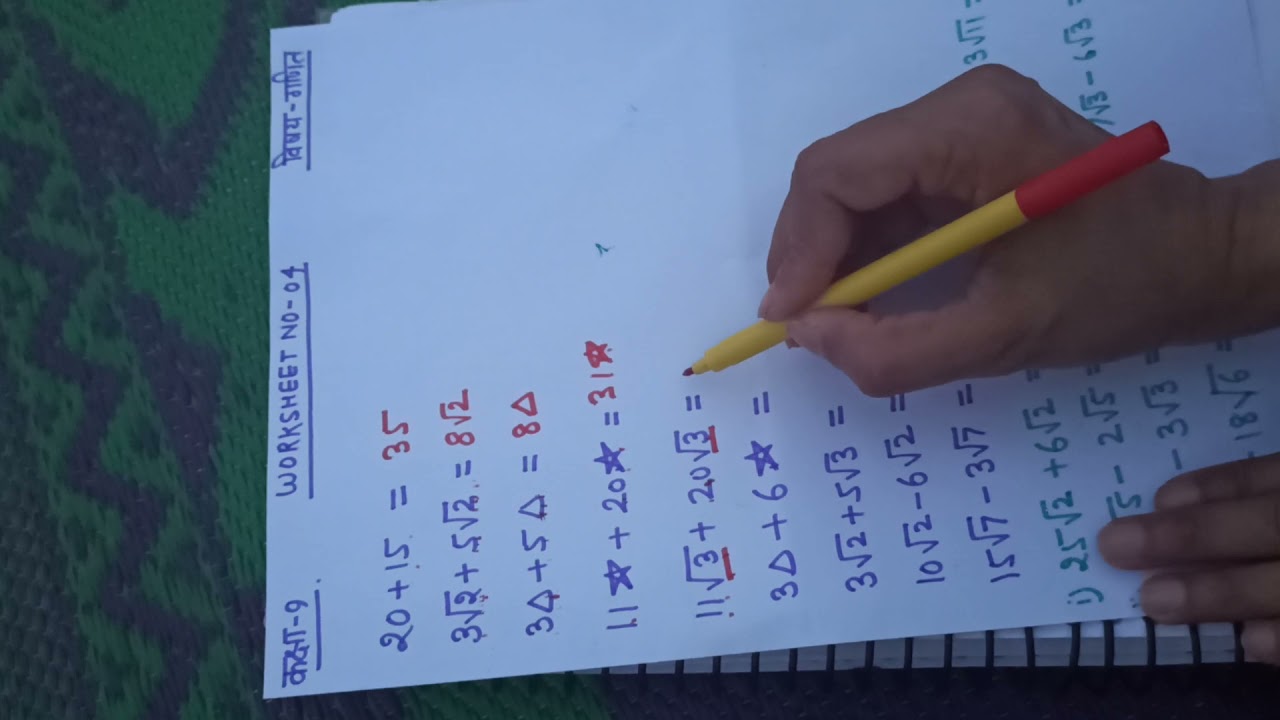 कक्षा-9 WORKSHEET NO-04 विषय-गणित
20+15 = 35
3√2+5√2 = 8√2
3△+5△ = 8△
11☆+20☆ = 31☆
11√3+20√3 =
3△+6☆ =
3√2+5√3 =
10√2-6√2 =
15√7-3√7 =
3√11 =
i) 25√2+6√2 =
√3-6√3 =
√5-2√5 =
-3√3 =
18√6 =